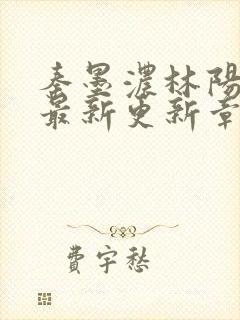 秦墨濃林陽
最新更新章
費宇愁